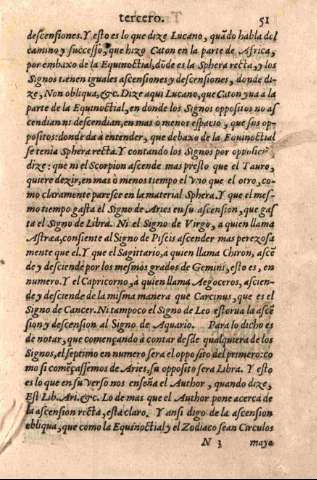 tercero. 51
descensiones. Y esto es lo que dize Lucano, quãdo habla del
camino y successo, que hizo Caton en la parte de Africa,
por embaxo de la Equinoctial, dõde es la Sphera recta, y los
Signos tienen iguales ascensiones y descensiones, donde di-
ze, Non obliqua, &c. Dize aqui Lucano, que Caton yua a la
parte de la Equinoctial, en donde los Signos oppositos no as-
cendian ni descendian, en mas o menos espacio, que sus op-
positos: donde da a entender, que debaxo de la Equinoctial
se tenia Sphera recta. Y contando los Signos por opposicio
dize: que ni el Scorpion asciende mas presto que el Tauro,
quiere dezir, en mas ò menos tiempo el vno que el otro, co-
mo claramente paresce en la material Sphera. Y que el mes-
mo tiempo gasta el Signo de Aries en su ascension, que gas-
ta el Signo de Libra. Ni el Signo de Virgo, a quien llama
Astræa, consiente al Signo de Piscis ascender mas perezosa
mente que el. Y que el Sagittario, a quien llama Chiron, asciẽ
de y desciende por los mesmos grados de Geminis, esto es, en
numero. Y el Capricorno, a quien llama Aegoceros, ascien-
de y desciende de la misma manera que Carcinus, que es el
Signo de Cancer. Ni tampoco el Signo de Leo estorua la ascẽ
sion y descension al Signo de Aquario. Para lo dicho es
de notar, que començando à contar desde qualquiera de los
Signos, el septimo en numero sera el opposito del primero: co
mo si començassemos de Aries, su opposito sera Libra. Y esto
es lo que en su verso nos enseña el Author, quando dize,
Est Lib. Ari. &c. Lo de mas que el Author pone acerca de
la ascension recta, està claro. Y ansi digo de la ascension
obliqua, que como la Equinoctial y el Zodiaco sean Circulos
N 3 mayo